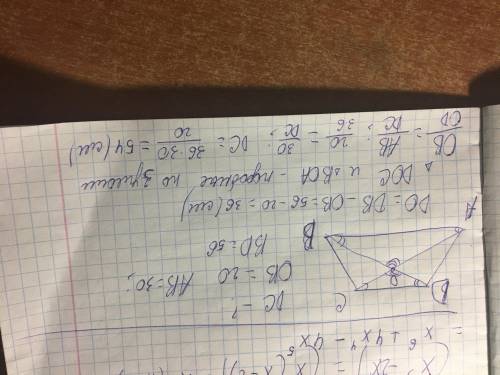 = x⁶ + 4x⁴ - 4x⁵
DC - ?
OB = 20 AB = 30;
BD = 56
D C
A B
DO = DB - OB = 56 - 20 = 36 (см)
△ DOC и △BCA - подобные по 3 углам
OB/OD = AB/DC; 20/36 = 30/DC; DC = 36·30/20 = 54 (см)